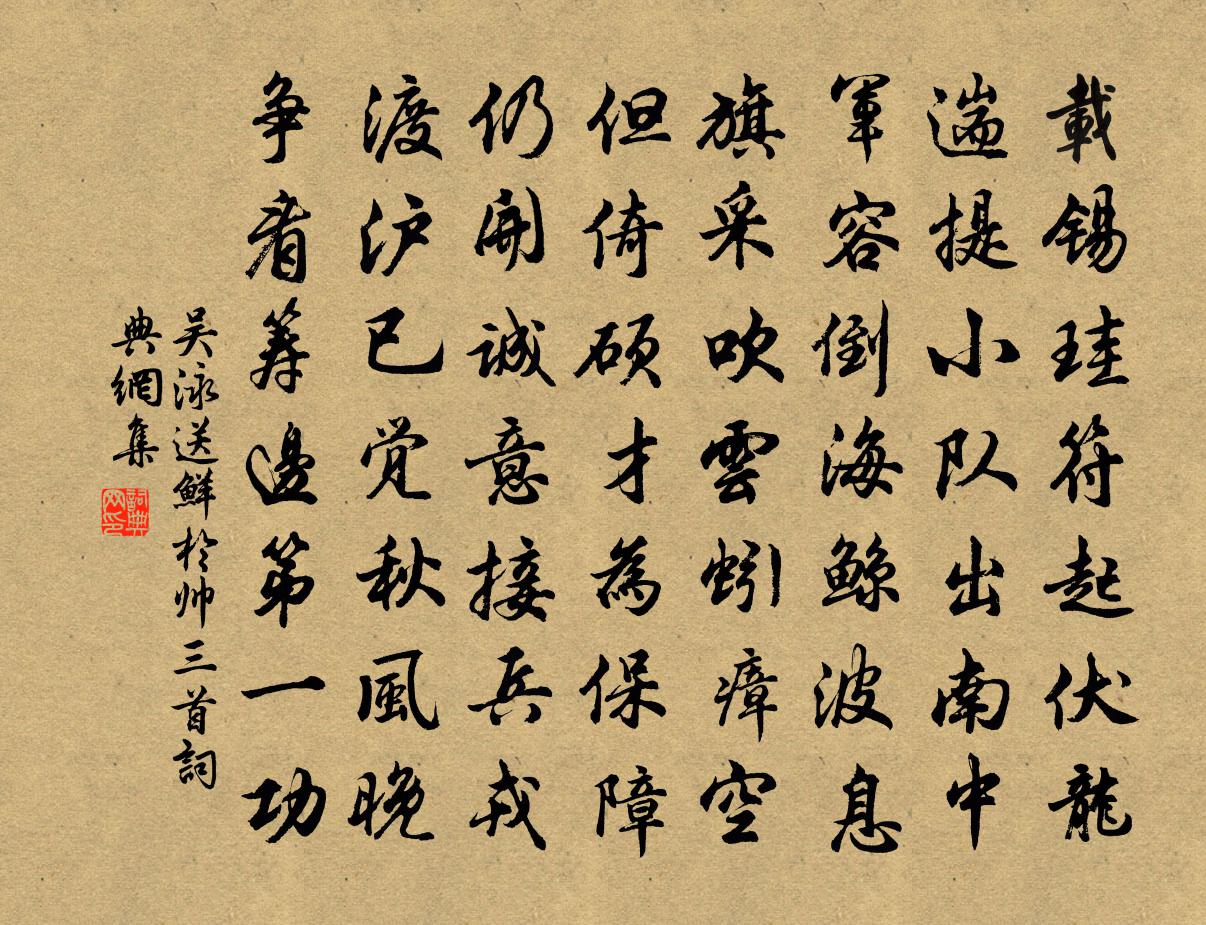 載锡珪符起伏龍
遄提小队出南中
軍容倒海鲸波息
旗采吹雲蚓瘴空
但倚硕才為保障
仍開誠意接兵戎
渡沪已觉秋風晚
争看筹邊第一功
吴泳送鲜於帅三首詞
典網集
詞典网印